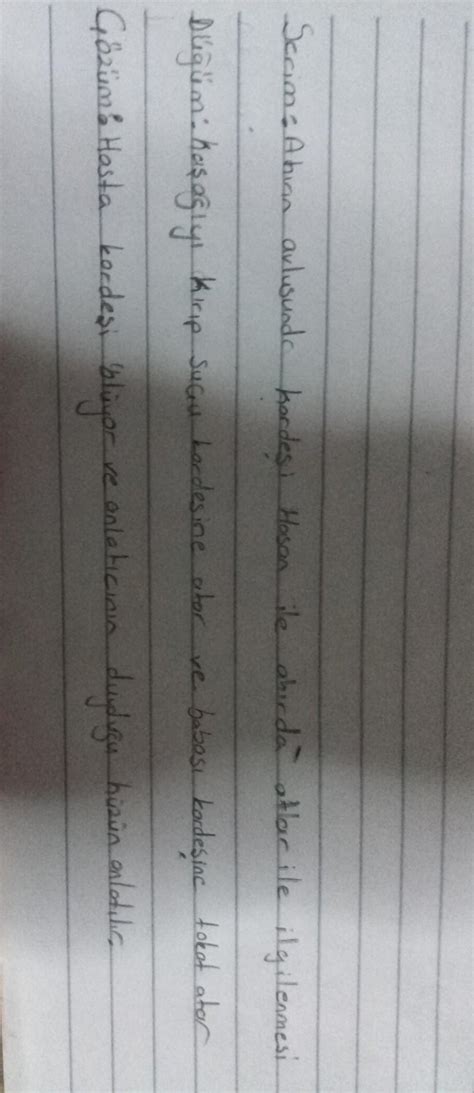 Serim: Ahırın avlusunda kardeşi Hasan ile ahırda atlar ile ilgilenmesi
Düğüm: Kaşağıyı kırıp suçu kardesine atar ve babası kardeşine tokat atar
Çözüm: Hasta kardeşi ölüyor ve anlatıcının duyduğu hüzün anlatılır.